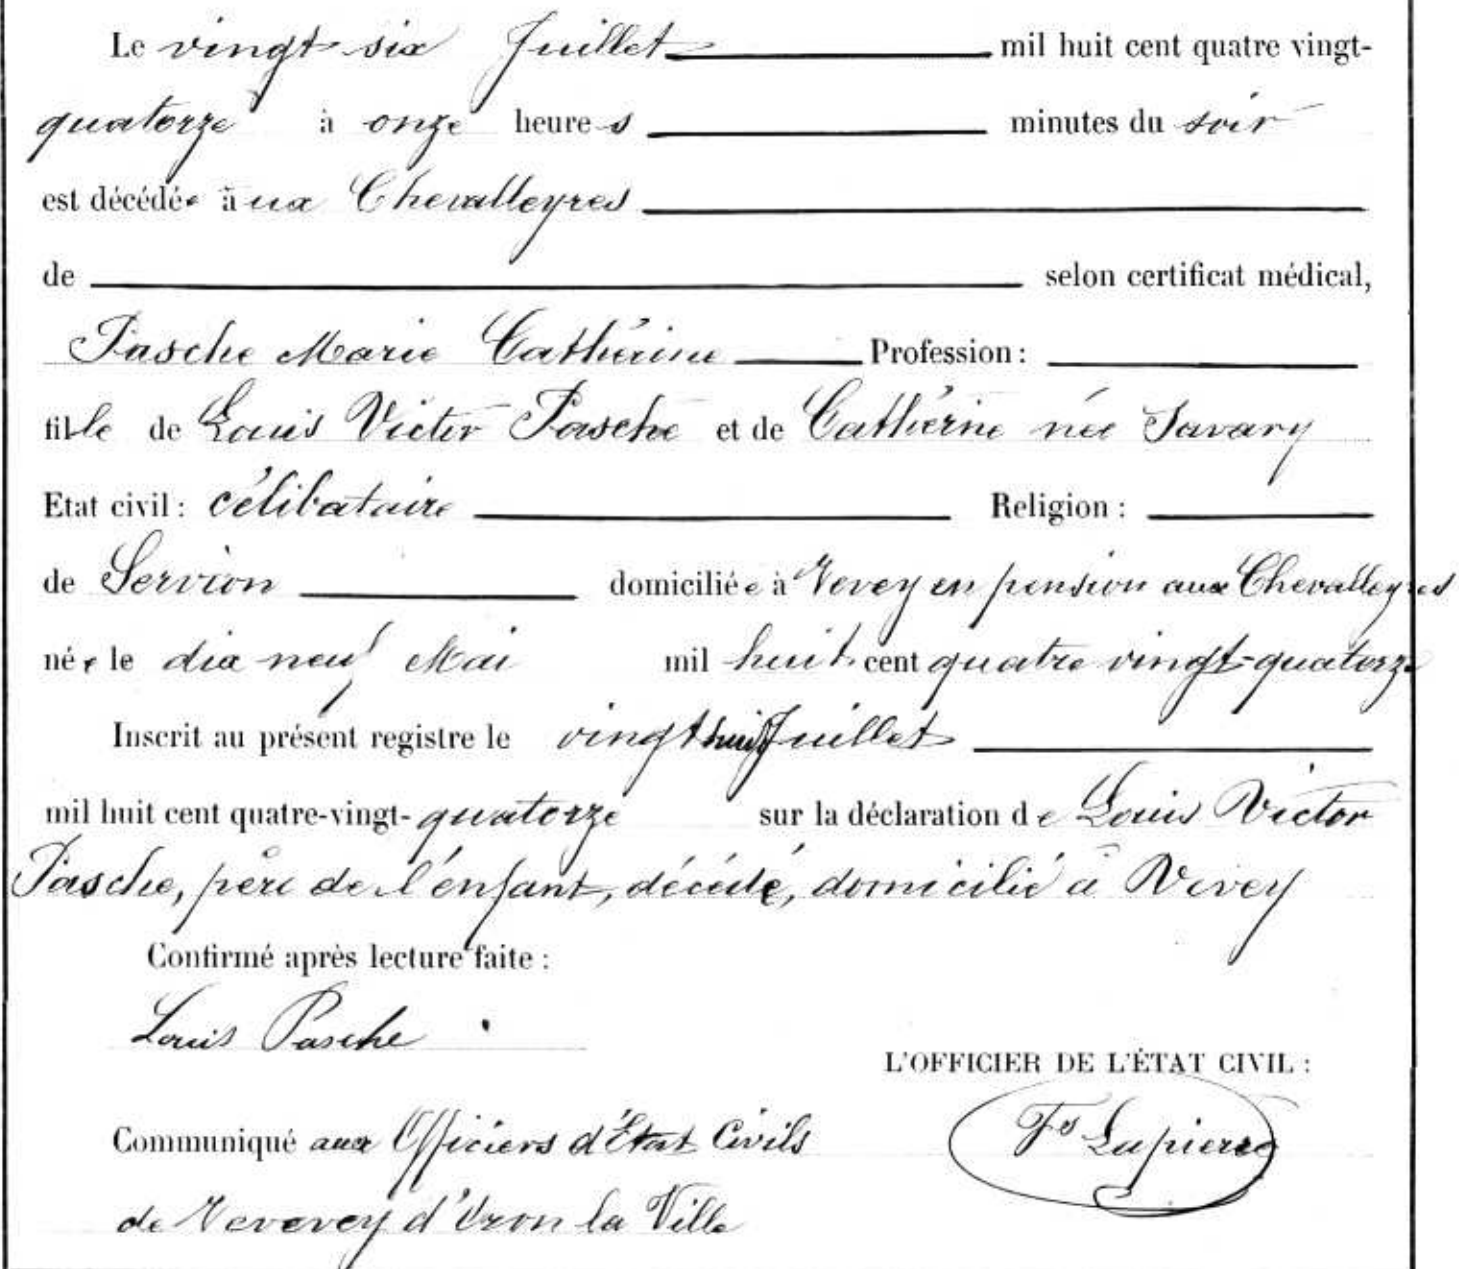 Le vingt-six Juillet mil huit cent quatre vingt-
quatorze à onze heures minutes du soir
est décédée aux Chevalleyres
de selon certificat médical,
Pasche Marie Cathérine Profession :
fille de Louis Victor Pasche et de Cathérine née Savary
Etat civil : célibataire Religion :
de Servion domiciliée à Vevey en pension aux Chevalleyres
née le dix neuf Mai mil huit cent quatre vingt-quatorze
Inscrit au présent registre le vingt huit Juillet
mil huit cent quatre-vingt-quatorze sur la déclaration de Louis Victor
Pasche, père de l'enfant, décédé, domicilié à Vevey
Confirmé après lecture faite :
Louis Pasche
L'OFFICIER DE L'ÉTAT CIVIL :
Communiqué aux Officiers d'État Civils
Fs Lapierre
de Vevevey d'Oron la Ville